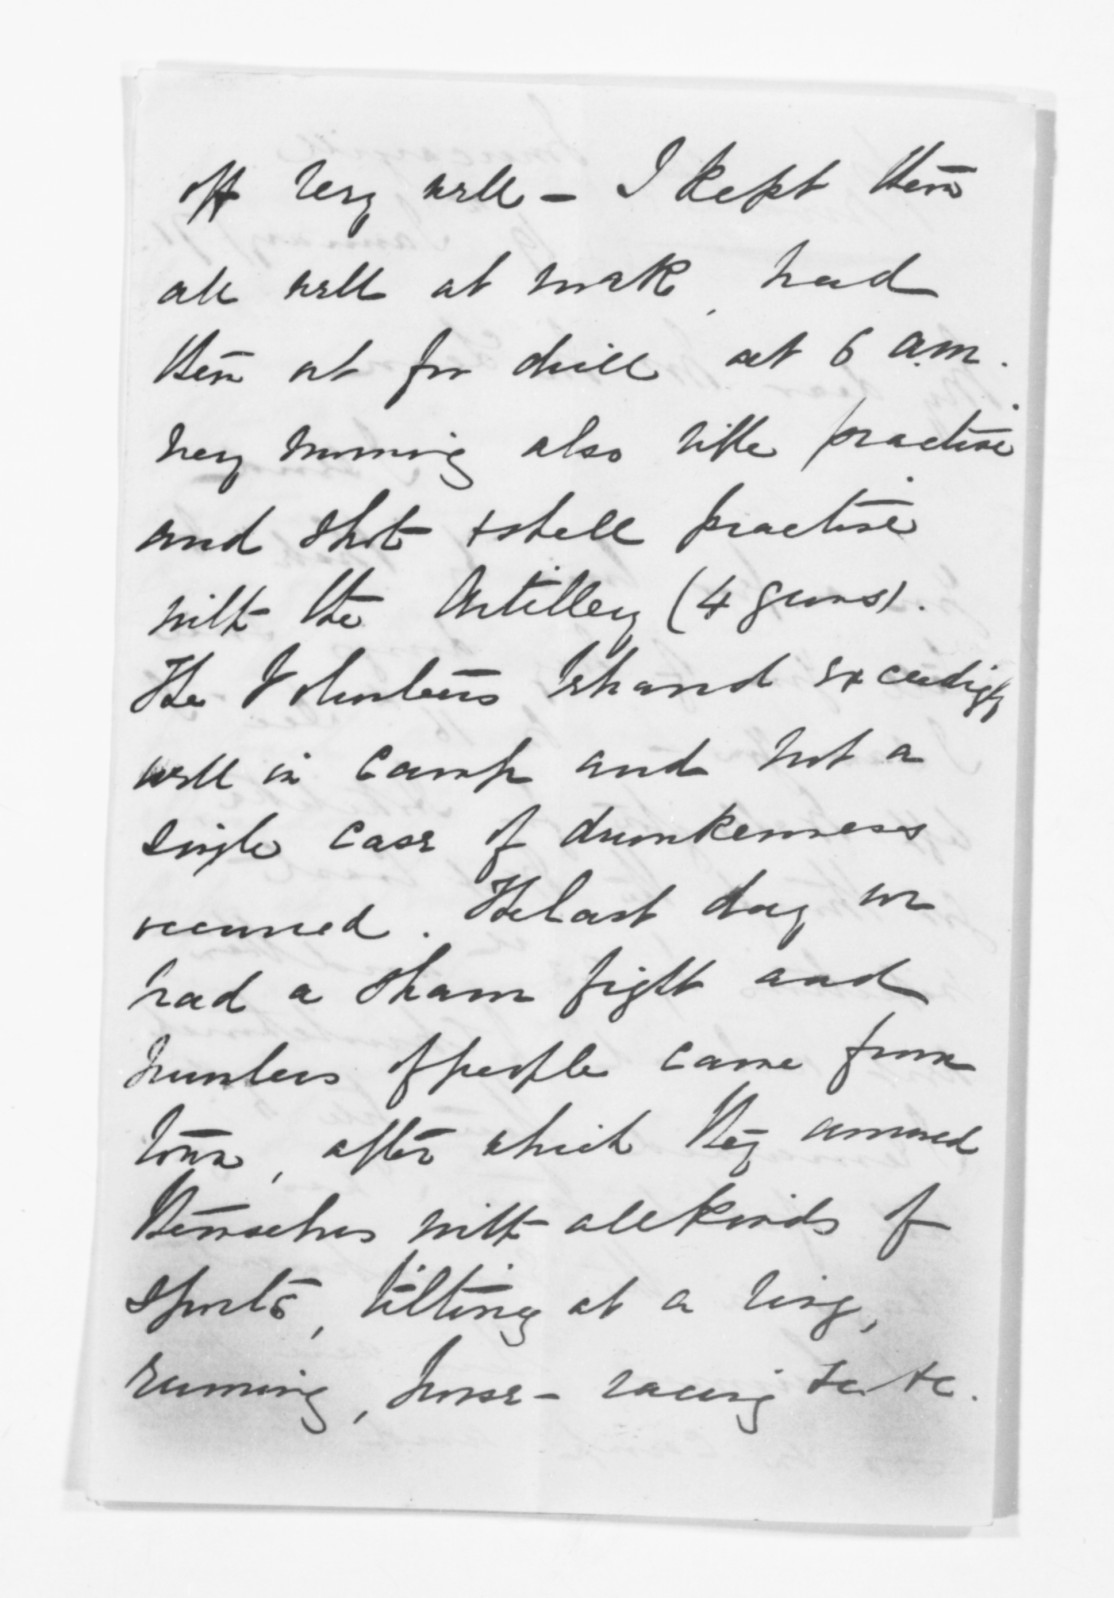 off very well – I kept them
all well at work, had
them at for drill at 6 a.m.
every morning also rifle practise
and shot & shell practise
with the Artillery (4 guns).
The Volunteers behaved exceedingly
well in camp and not a
single case of drunkenness
occurred. The last day we
had a sham fight and
numbers of people came from
town, after which they amused
themselves with all kinds of
sports, tilting at a ring,
running, horse-racing &c. &c.